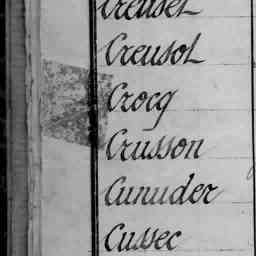 Creuset
Creusol
Crocq
Crusson
Cunuder
Cussec